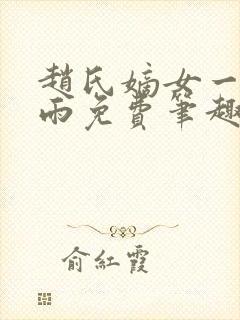 趙氏嫡女一
雨免費筆趣
俞紅霞